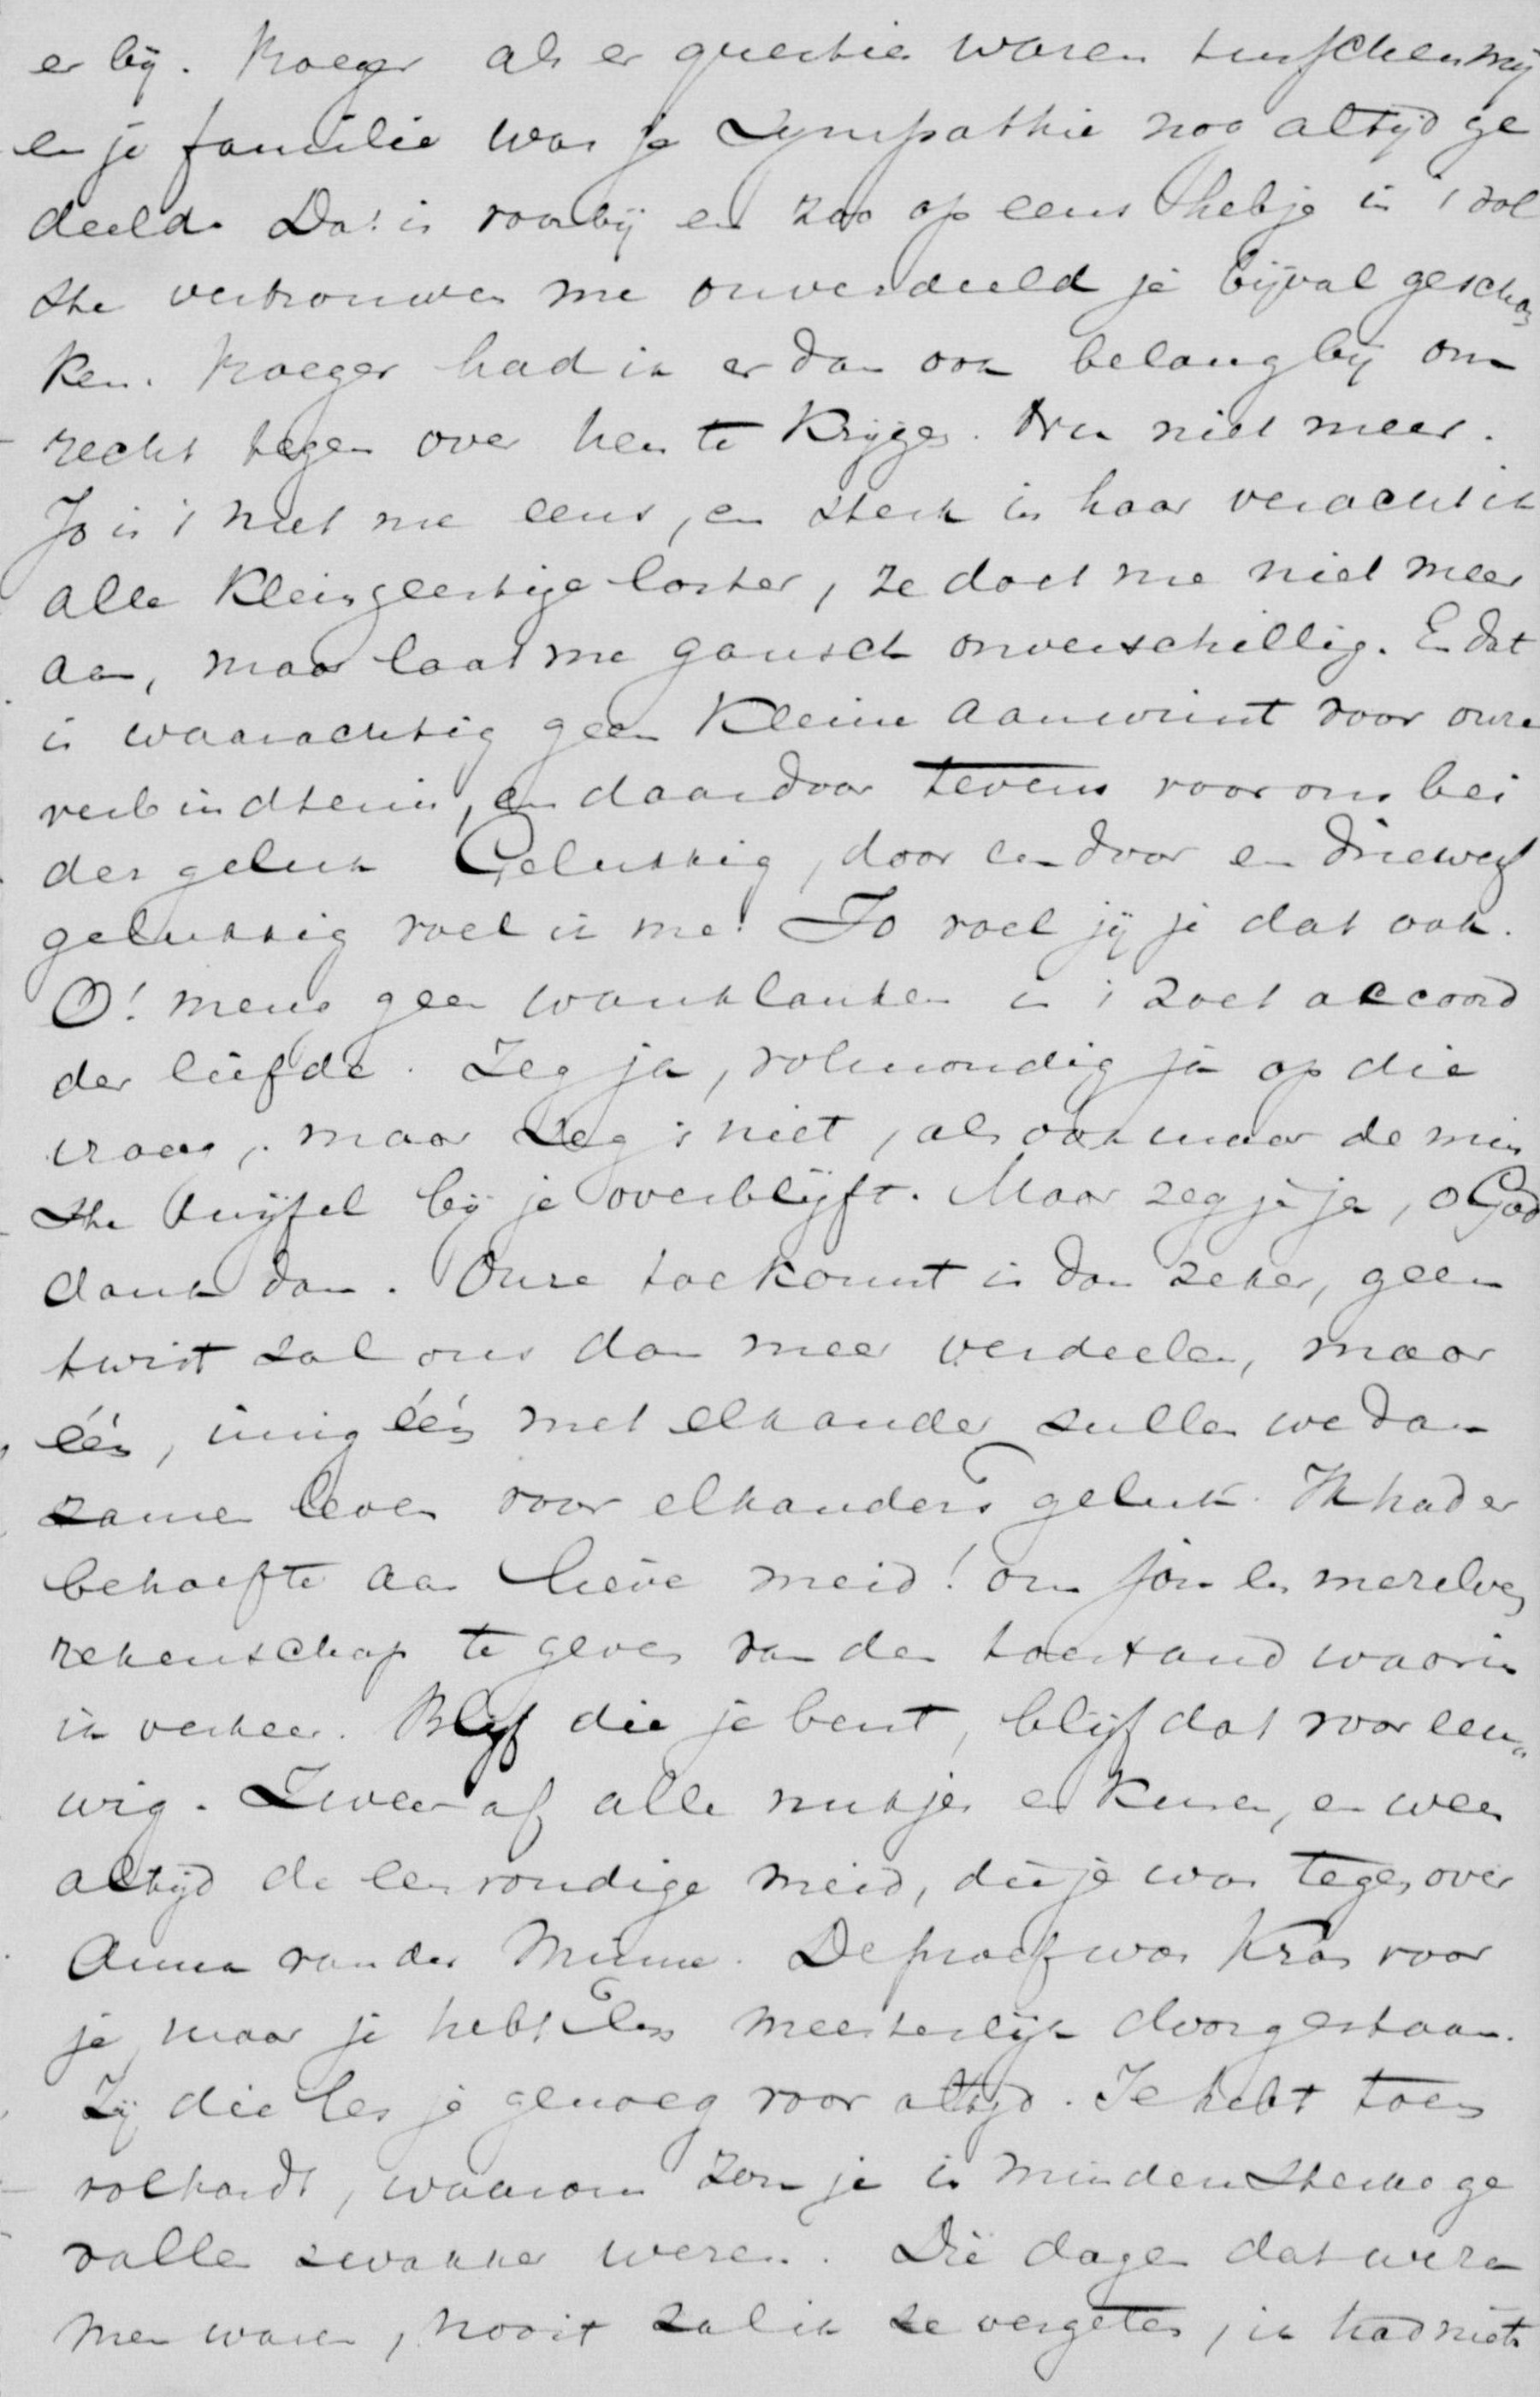 er bij. Vroeger als er questies waren tusschen mij
en je familie was je sympathie nog altijd ge
deeld. Dat is voorbij en zoo op eens heb je in 't vol
ste vertrouwen me onverdeeld je bijval geschon
ken. Vroeger had ik er dan ook belang bij om
recht tegen over hen te krijgen. Nu niet meer.
Jo is 't met me eens, en sterk in haar veracht ik
alle kleingeestige laster, ze doet me niet meer
aan, maar laat me gansch onverschillig. En dat
is waarachtig geen kleine aanwinst voor onze
verbindtenis, en daardoor tevens voor ons bei
der geluk Gelukkig, door en door en driewerf
gelukkig voel ik me! Jo voel jij je dat ook.
O! meng geen wanklanken in 't zoet accoord
der liefde. Zeg ja, volmondig ja op die
vraag, maar zeg 't niet, als ook maar de min
ste twijfel bij je overblijft. Maar zeg je ja, o God
dank dan. Onze toekomst is dan zeker, geen
twist zal ons dan meer verdeelen, maar
één, innig één met elkander zullen we dan
zamen leven voor elkanders geluk. Ik had er
behoefte aan lieve meid! om jou en mezelven
rekenschap te geven van den toestand waarin
ik verkeer. Blijf die je bent, blijf dat voor eeu„
wig. Zweer af alle nukjes en kuren, en wees
altijd de eenvoudige meid, die je was tegenover
Anna van der Minne. De proef was kras voor
je, maar je hebt ze meesterlijk doorgestaan.
Zij die les je genoeg voor altijd. Je hebt toen
volhardt, waarom zou je in minder sterke ge
vallen zwakker wezen. Die dagen dat we za
men waren, nooit zal ik ze vergeten, ik had niets